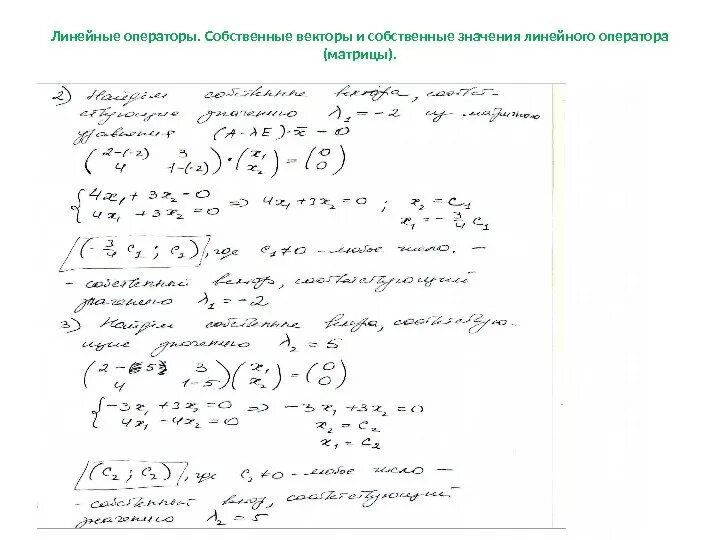 Линейные операторы. Собственные векторы и собственные значения линейного оператора
(матрицы).
2) Найдем собственные вектора, соответ-
ствующие значению λ₁ = -2 из матричного
уравнения (A - λE)·x̄ = 0
(2-(-2) 3
4 1-(-2))·(x₁
x₂) = (0
0)
{4x₁ + 3x₂ = 0
4x₁ + 3x₂ = 0 => 4x₁ + 3x₂ = 0 ; x₂ = C₁
x₁ = -3/4 C₁
(-3/4 C₁ ; C₁), где C₁ ≠ 0 - любое число. -
- собственный вектор, соответствующий
значению λ₁ = -2
3) Найдем собственные вектора, соответствую-
щие значению λ₂ = 5
(2-5 3
4 1-5)(x₁
x₂) = (0
0)
{-3x₁ + 3x₂ = 0
4x₁ - 4x₂ = 0 => -3x₁ + 3x₂ = 0
x₂ = C₂
x₁ = C₂
(C₂ ; C₂), где C₂ ≠ 0 - любое число -
- собственный вектор, соответствующий
значению λ₂ = 5